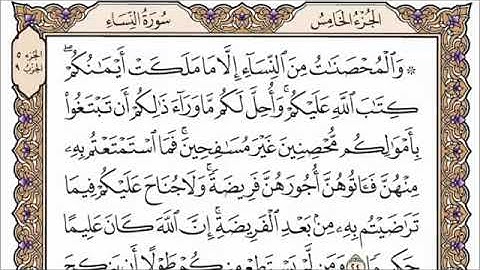 الجُزْءُ الخَامِسُ
سُورَةُ النِّسَاءِ
الجزء ٥
الحزب ٩
۞ وَٱلْمُحْصَنَٰتُ مِنَ ٱلنِّسَآءِ إِلَّا مَا مَلَكَتْ أَيْمَٰنُكُمْ ۖ
كِتَٰبَ ٱللَّهِ عَلَيْكُمْ ۚ وَأُحِلَّ لَكُم مَّا وَرَآءَ ذَٰلِكُمْ أَن تَبْتَغُوا۟
بِأَمْوَٰلِكُم مُّحْصِنِينَ غَيْرَ مُسَٰفِحِينَ ۚ فَمَا ٱسْتَمْتَعْتُم بِهِۦ
مِنْهُنَّ فَـَٔاتُوهُنَّ أُجُورَهُنَّ فَرِيضَةً ۚ وَلَا جُنَاحَ عَلَيْكُمْ فِيمَا
تَرَٰضَيْتُم بِهِۦ مِنۢ بَعْدِ ٱلْفَرِيضَةِ ۚ إِنَّ ٱللَّهَ كَانَ عَلِيمًا
حَكِيمًا ٢٤ وَمَن لَّمْ يَسْتَطِعْ مِنكُمْ طَوْلًا أَن يَنكِحَ